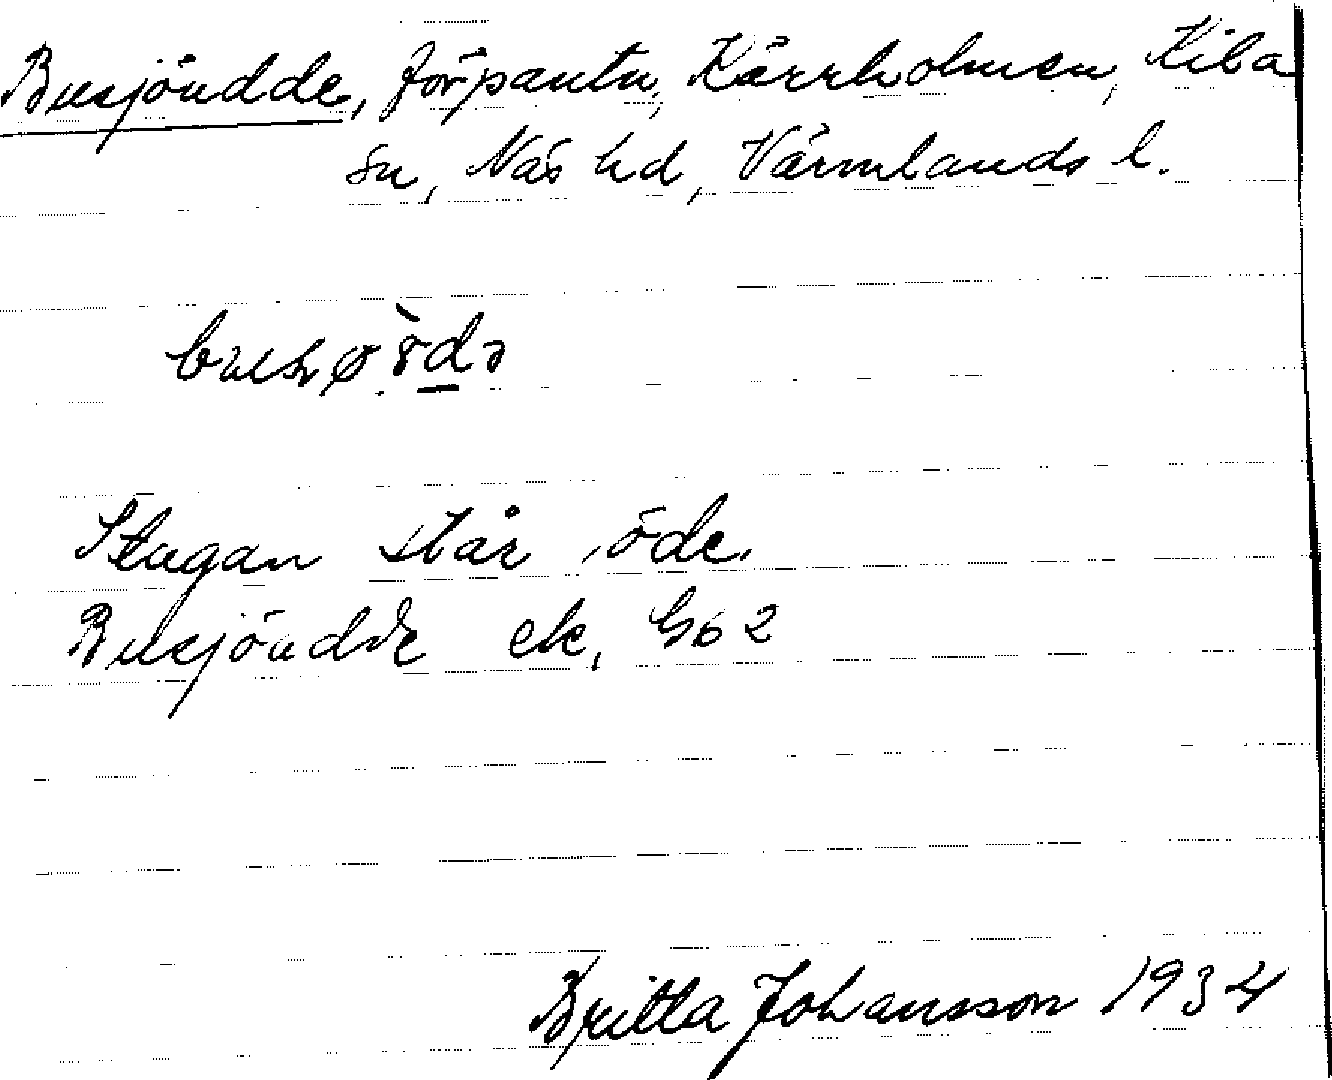 Busjöudde, förpantn, Kärrholmen, Kila
sn, Näs hd, Värmlands l.
Stugan står öde.
Busjöudde ek, G62
Britta Johansson 1934